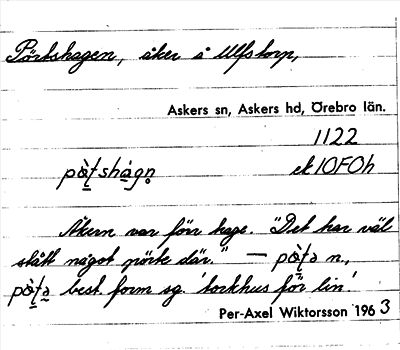 Pörtshagen, åker å Ulfstorp,
Askers sn, Askers hd, Örebro län.
1122
ek 10F0h
Åkern var förr hage. "Det har väl
stått något pörte där." —
best. form sg. 'torkhus för lin'.
Per-Axel Wiktorsson 1963